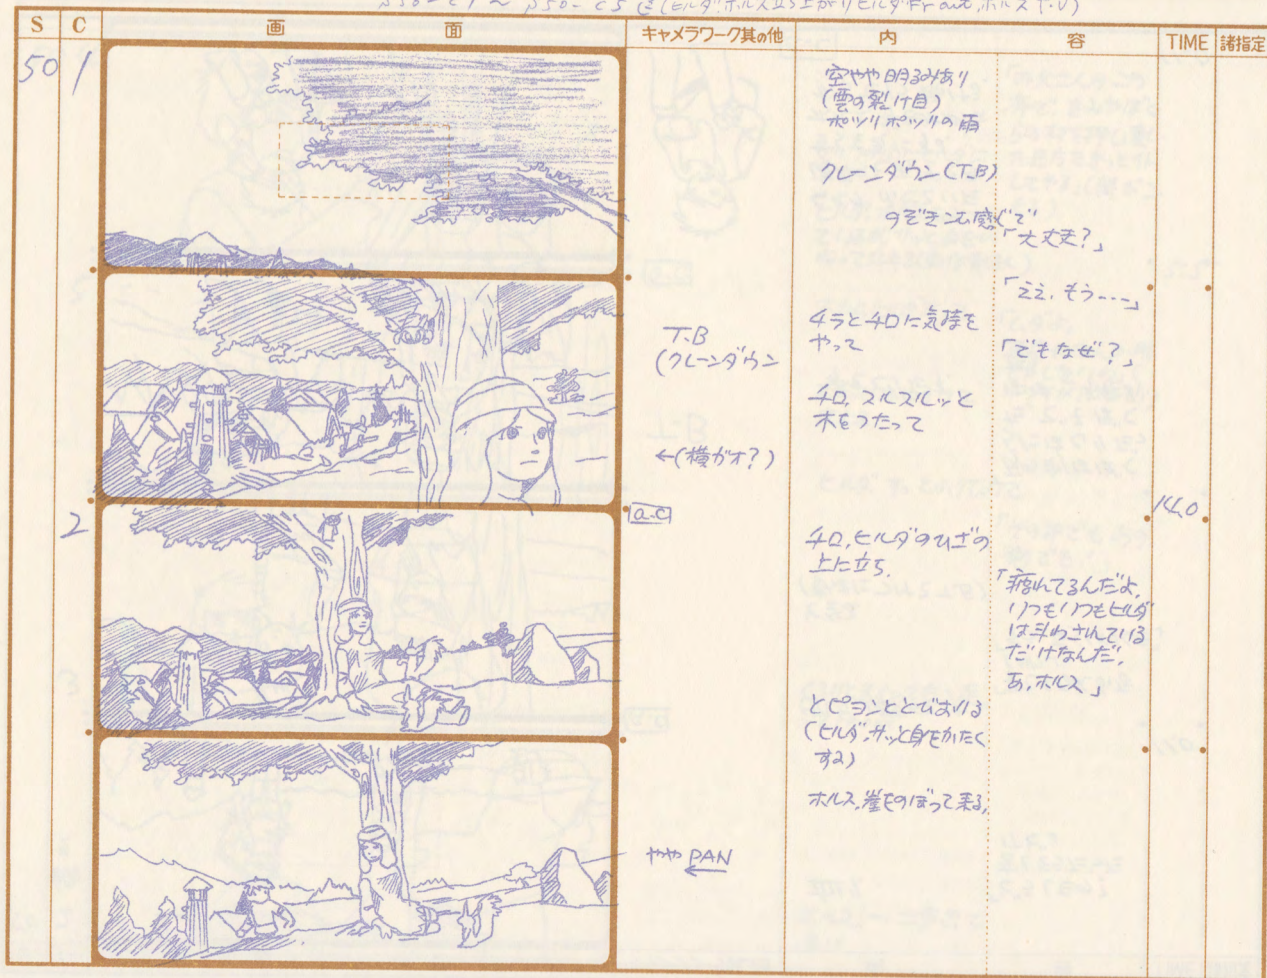 S
C
画 面
キャメラワーク其の他
内 容
TIME
諸指定
50
1
空やや明るみあり
(雲の裂け目)
ポツリポツリの雨
クレーンダウン(T.B)
のぞきこむ感じで
「大丈夫?」
「ええ、もう---」
T.B
(クレーンダウン
チラとチロに気持を
やって
「でもなぜ?」
チロ、スルスルッと
木をつたって
←(横ガオ?)
14.0
2
a.c
チロ、ヒルダのひざの
上に立ち、
「疲れてるんだよ、
いつもいつもヒルダ
は斗わされている
だけなんだ、
あ、ホルス」
とピヨンととびおりる
(ヒルダ、サッと身をかたく
する)
ホルス、崖をのぼって来る、
やや PAN